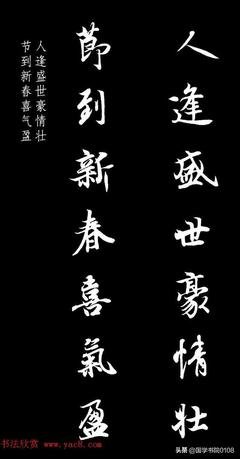 人逢盛世豪情壮
節到新春喜氣盈
人逢盛世豪情壮
节到新春喜气盈
书法欣赏 www.yac8.com
头条 @国学书院0108